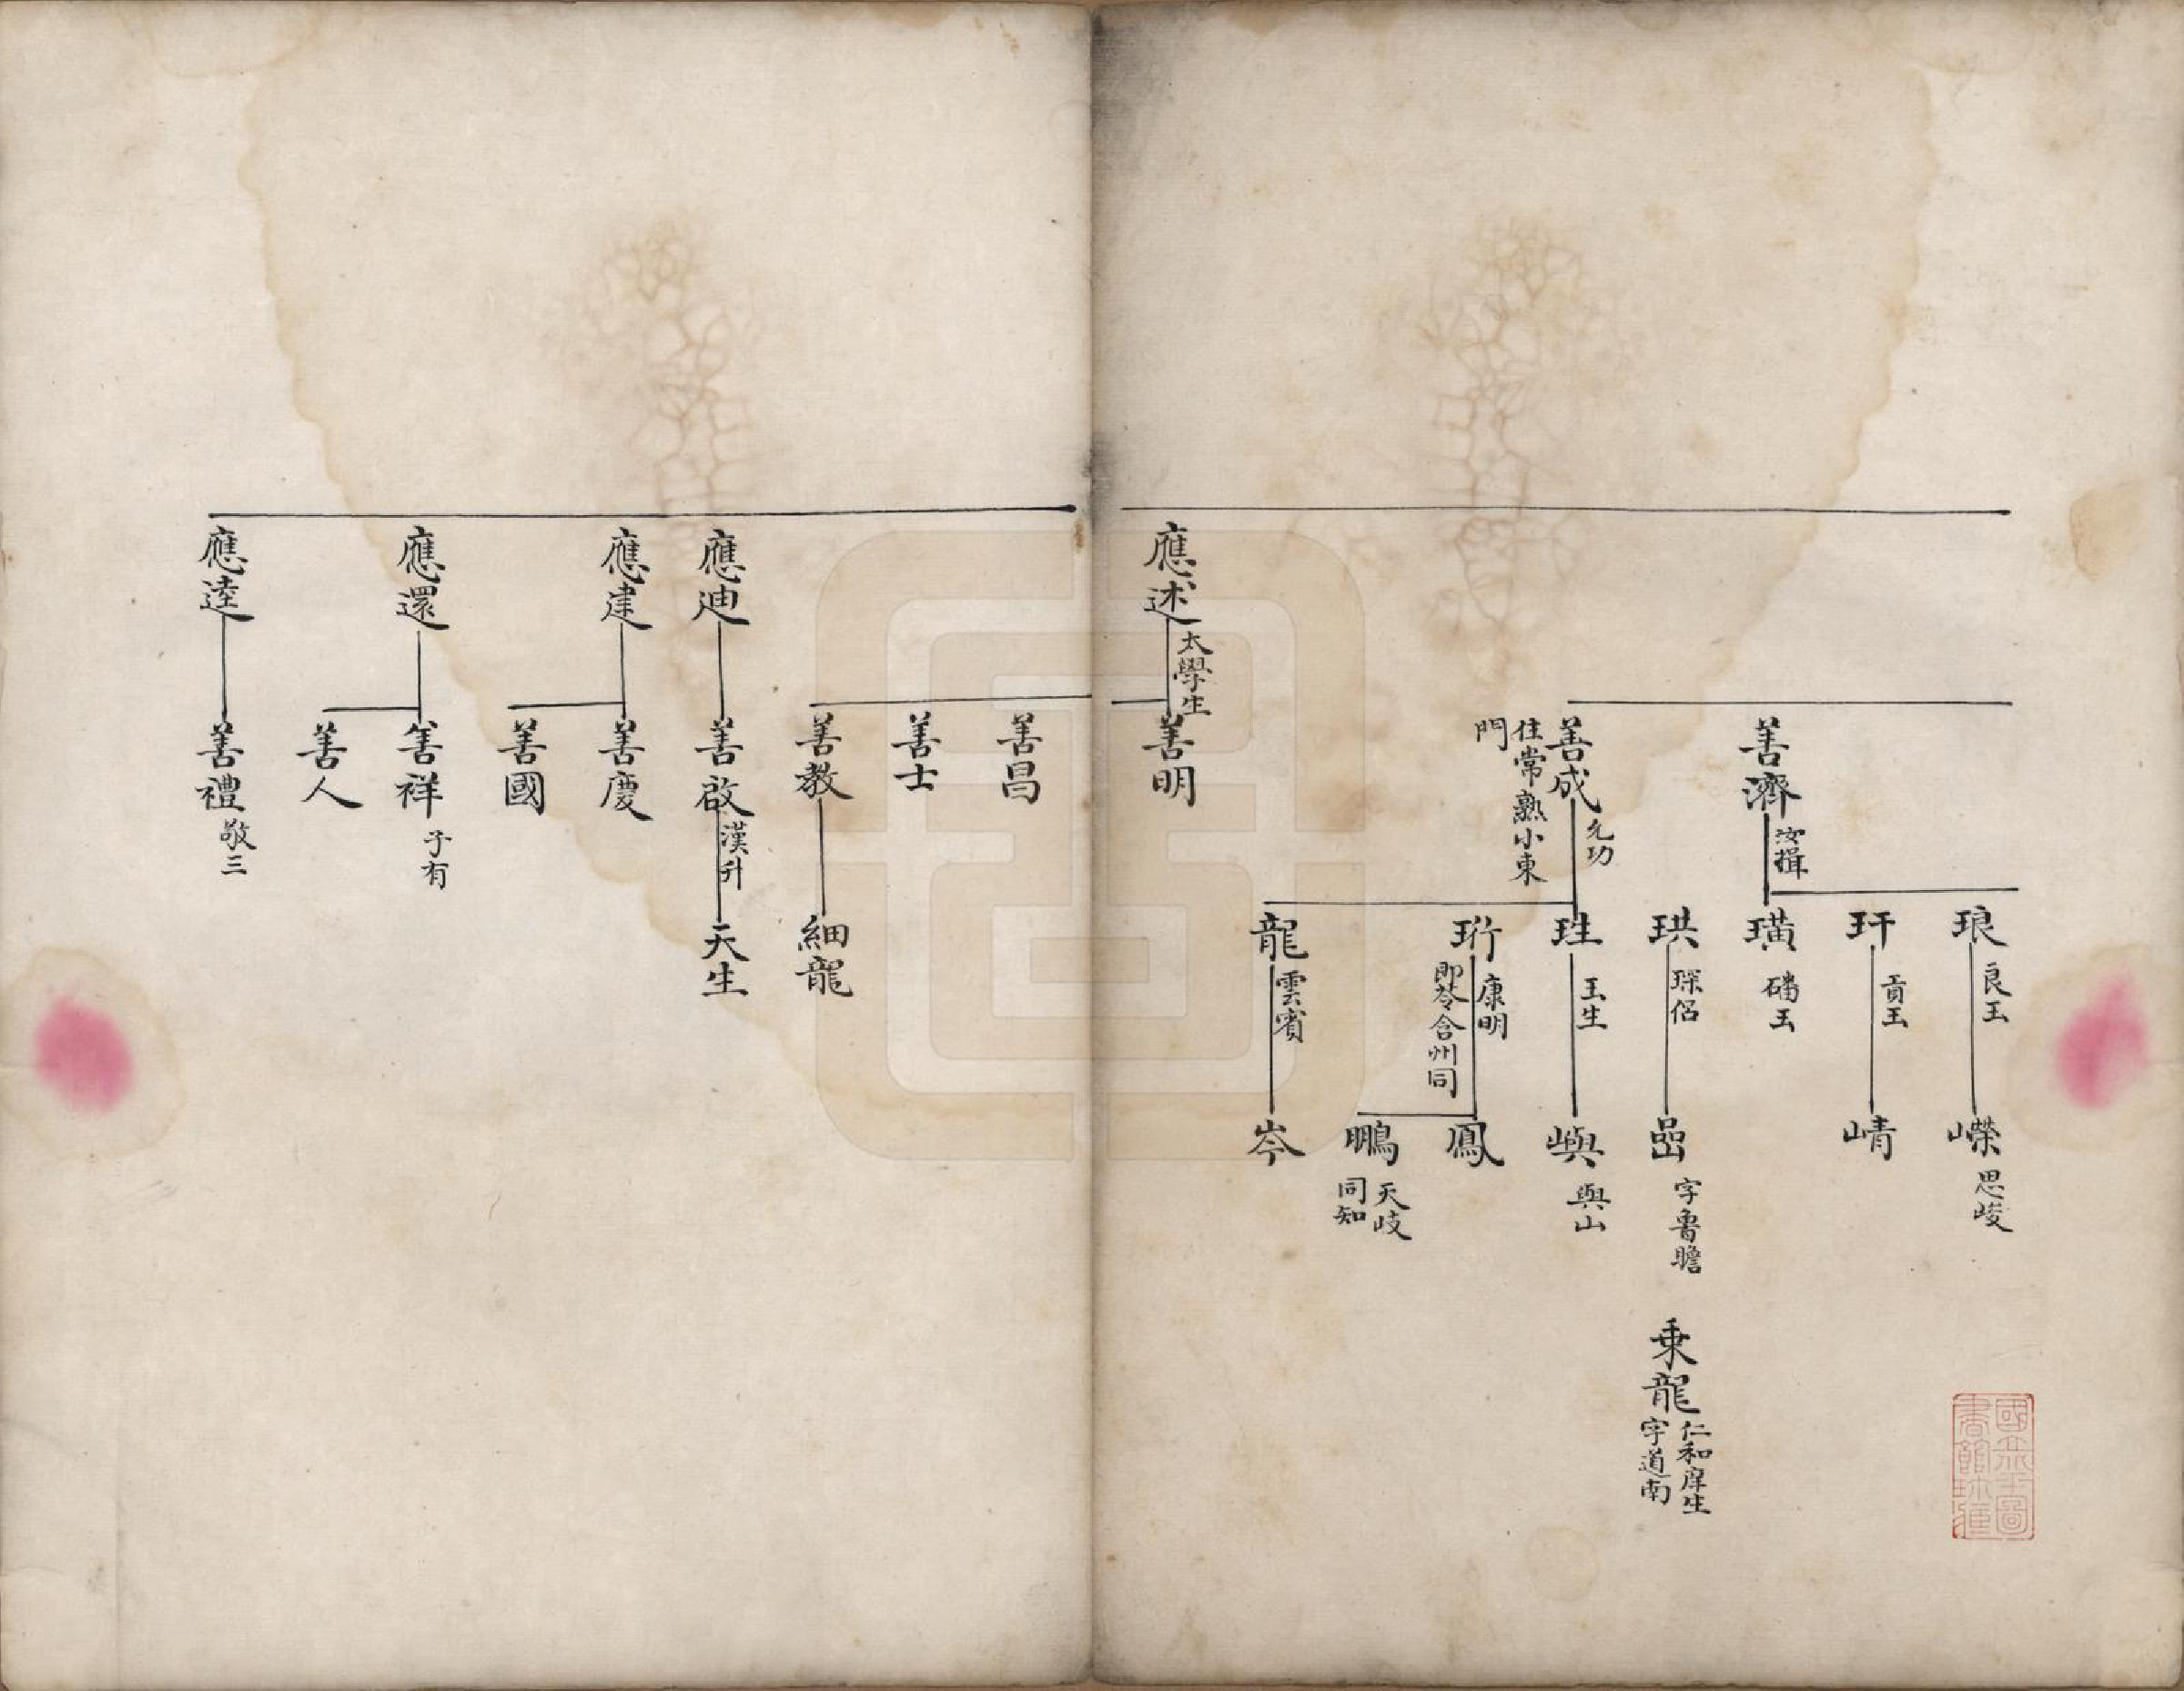 應述
太學生
善濟
汝揖
善成
允功
住常熟小東
門
善明
琅
良玉
玕
貢玉
璜
磻玉
珙
琛侶
珄
玉生
珩
康明
即苓含州同
龍
雲賓
嶸
思峻
崝
嵒
字魯瞻
嶼
與山
鳳
鵬
天岐
同知
岑
乘龍
仁和庠生
字道南
國立中央圖
書館珍藏
應迪
應建
應還
應逵
善昌
善士
善教
善啟
漢升
善慶
善國
善祥
子有
善人
善禮
敬三
細龍
天生